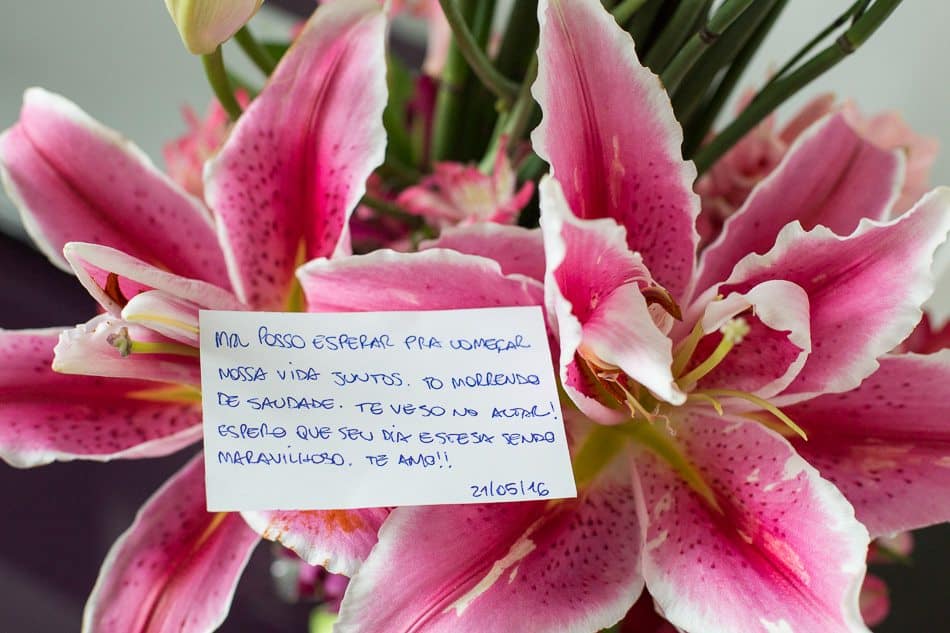 MAL POSSO ESPERAR PRA COMEÇAR
NOSSA VIDA JUNTOS. TO MORRENDO
DE SAUDADE. TE VEJO NO ALTAR!
ESPERO QUE SEU DIA ESTEJA SENDO
MARAVILHOSO. TE AMO!!
21/05/16